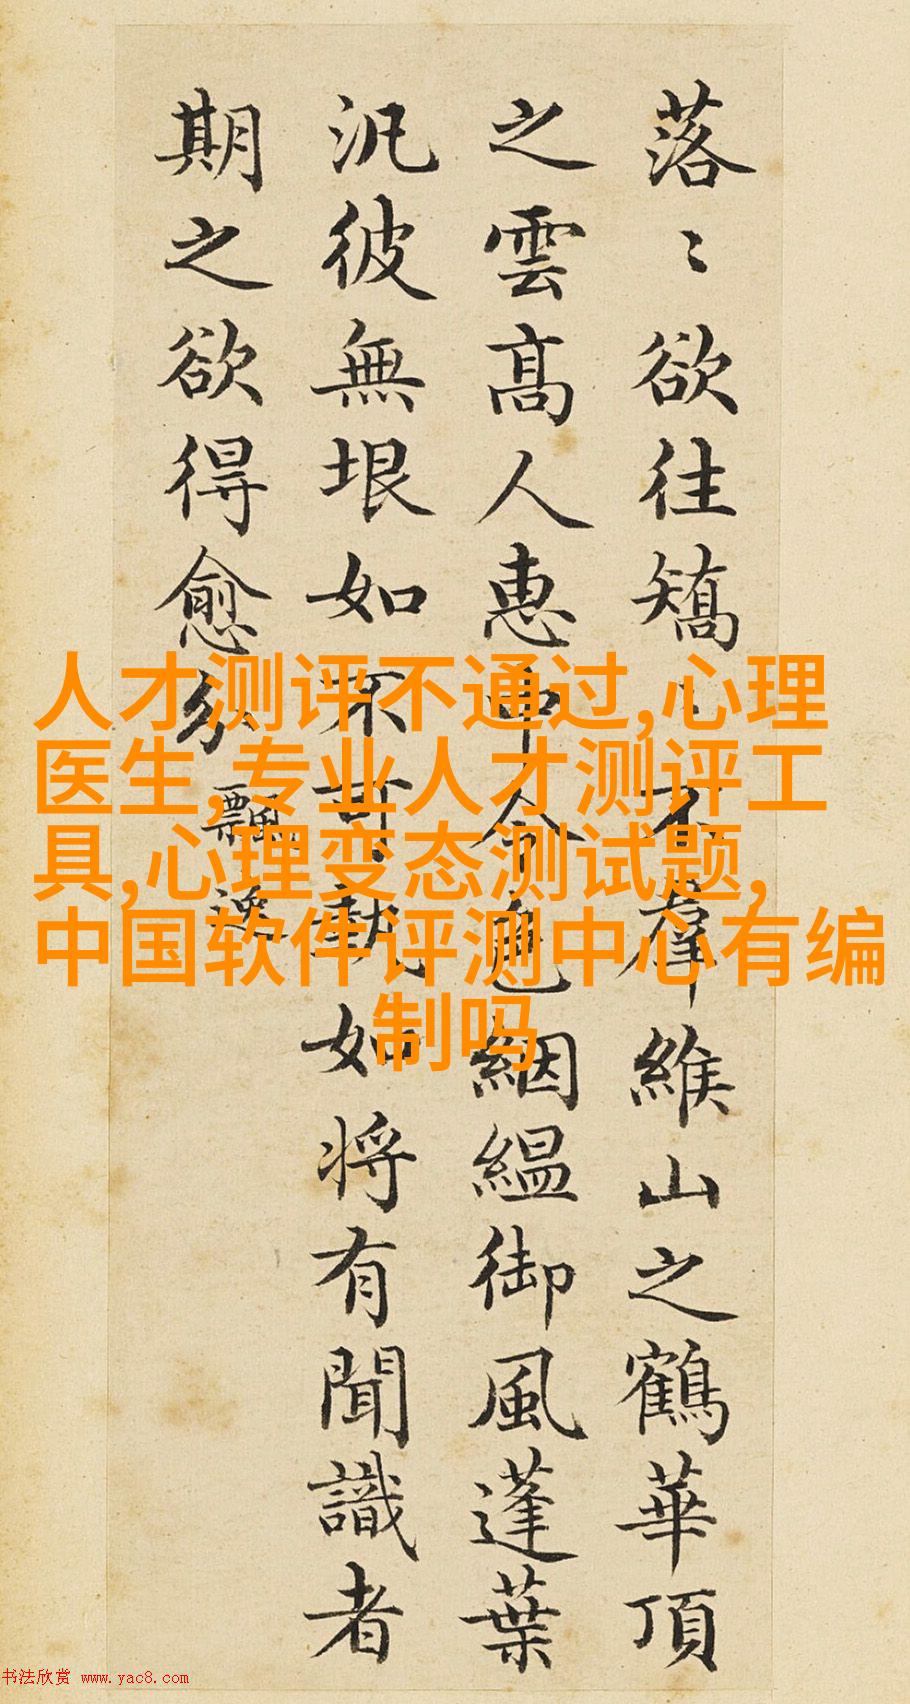 落〻欲往矯〻不羣緱山之鶴華頂
之雲髙人惠中令色絪緼御風蓬葉
汎彼無垠如不可執如将有聞識者
期之欲得愈分 飄逸
人才测评不通过,心理
医生,专业人才测评工
具,心理变态测试题,
中国软件评测中心有编
制吗
书法欣赏 www.yac8.com